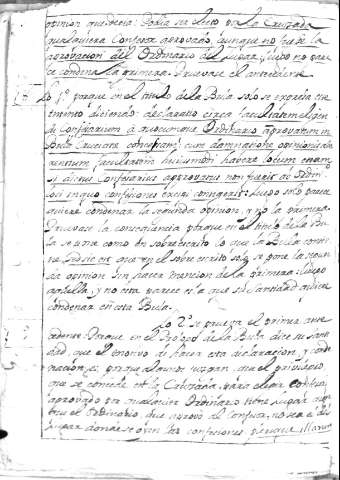 opinion que decia: Podia ser electo por la Cruzada
qualquiera Confesor aprovado, aunque no fuese la
aprovacion del Ordinario del lugar, luego no pare
se condena la primera. Pruevase el antecedente
Lo 1º porque en el titulo de la Bula solo se expresa este
intento diciendo: declaratio circa facultatem eligen
di Confessarium à quocumque Ordinario approvatum in
Bula Cruciatæ concessam, cum damnatione opinionis
facultatem huiusmodi habere locum etiam
si dictus Confessarius approvatus non fuerit ab Ordin
loci in quo confessiones excipi contigerit: luego solo parece
quiere condenar la segunda opinion, y no la primera.
Pruevase la consequencia porque en el titulo de la Bu
la se pone como en sobrescrito lo que la Bula contie
ne Sed sic est que en el sobrescrito solo se pone la segun
da opinion sin hacer mencion de la primera: luego
aquella, y no esta parece es la que su Santidad quiere
condenar en esta Bula.
Lo 2º se prueva el primer ante
cedente: Porque en el de la Bula dice su Santi
dad, que el motivo de hacer esta declaracion, y conde
nacion es porque algunos juzgan que el privilegio,
que se concede en la Cruzada, para elegir Confesor
aprovado por qualquier Ordinario tiene lugar aun
que el Ordinario, que aprovó al Confesor, no sea el del
lugar donde se oyen las confesiones